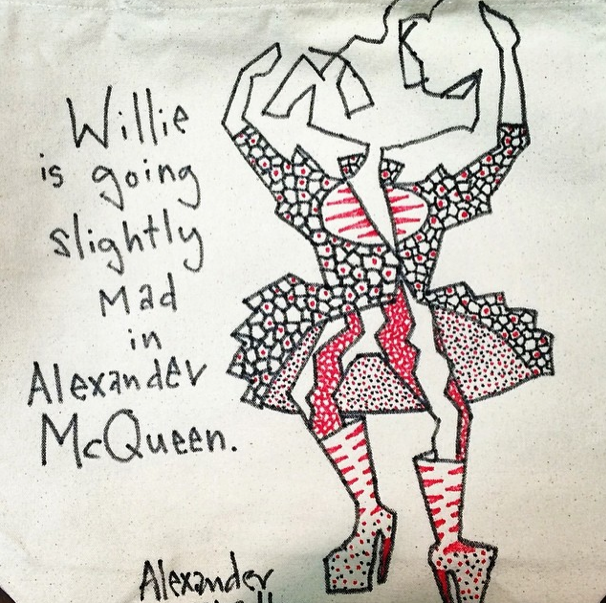 Willie
is going
slightly
Mad
in
Alexander
McQueen.
Alexander